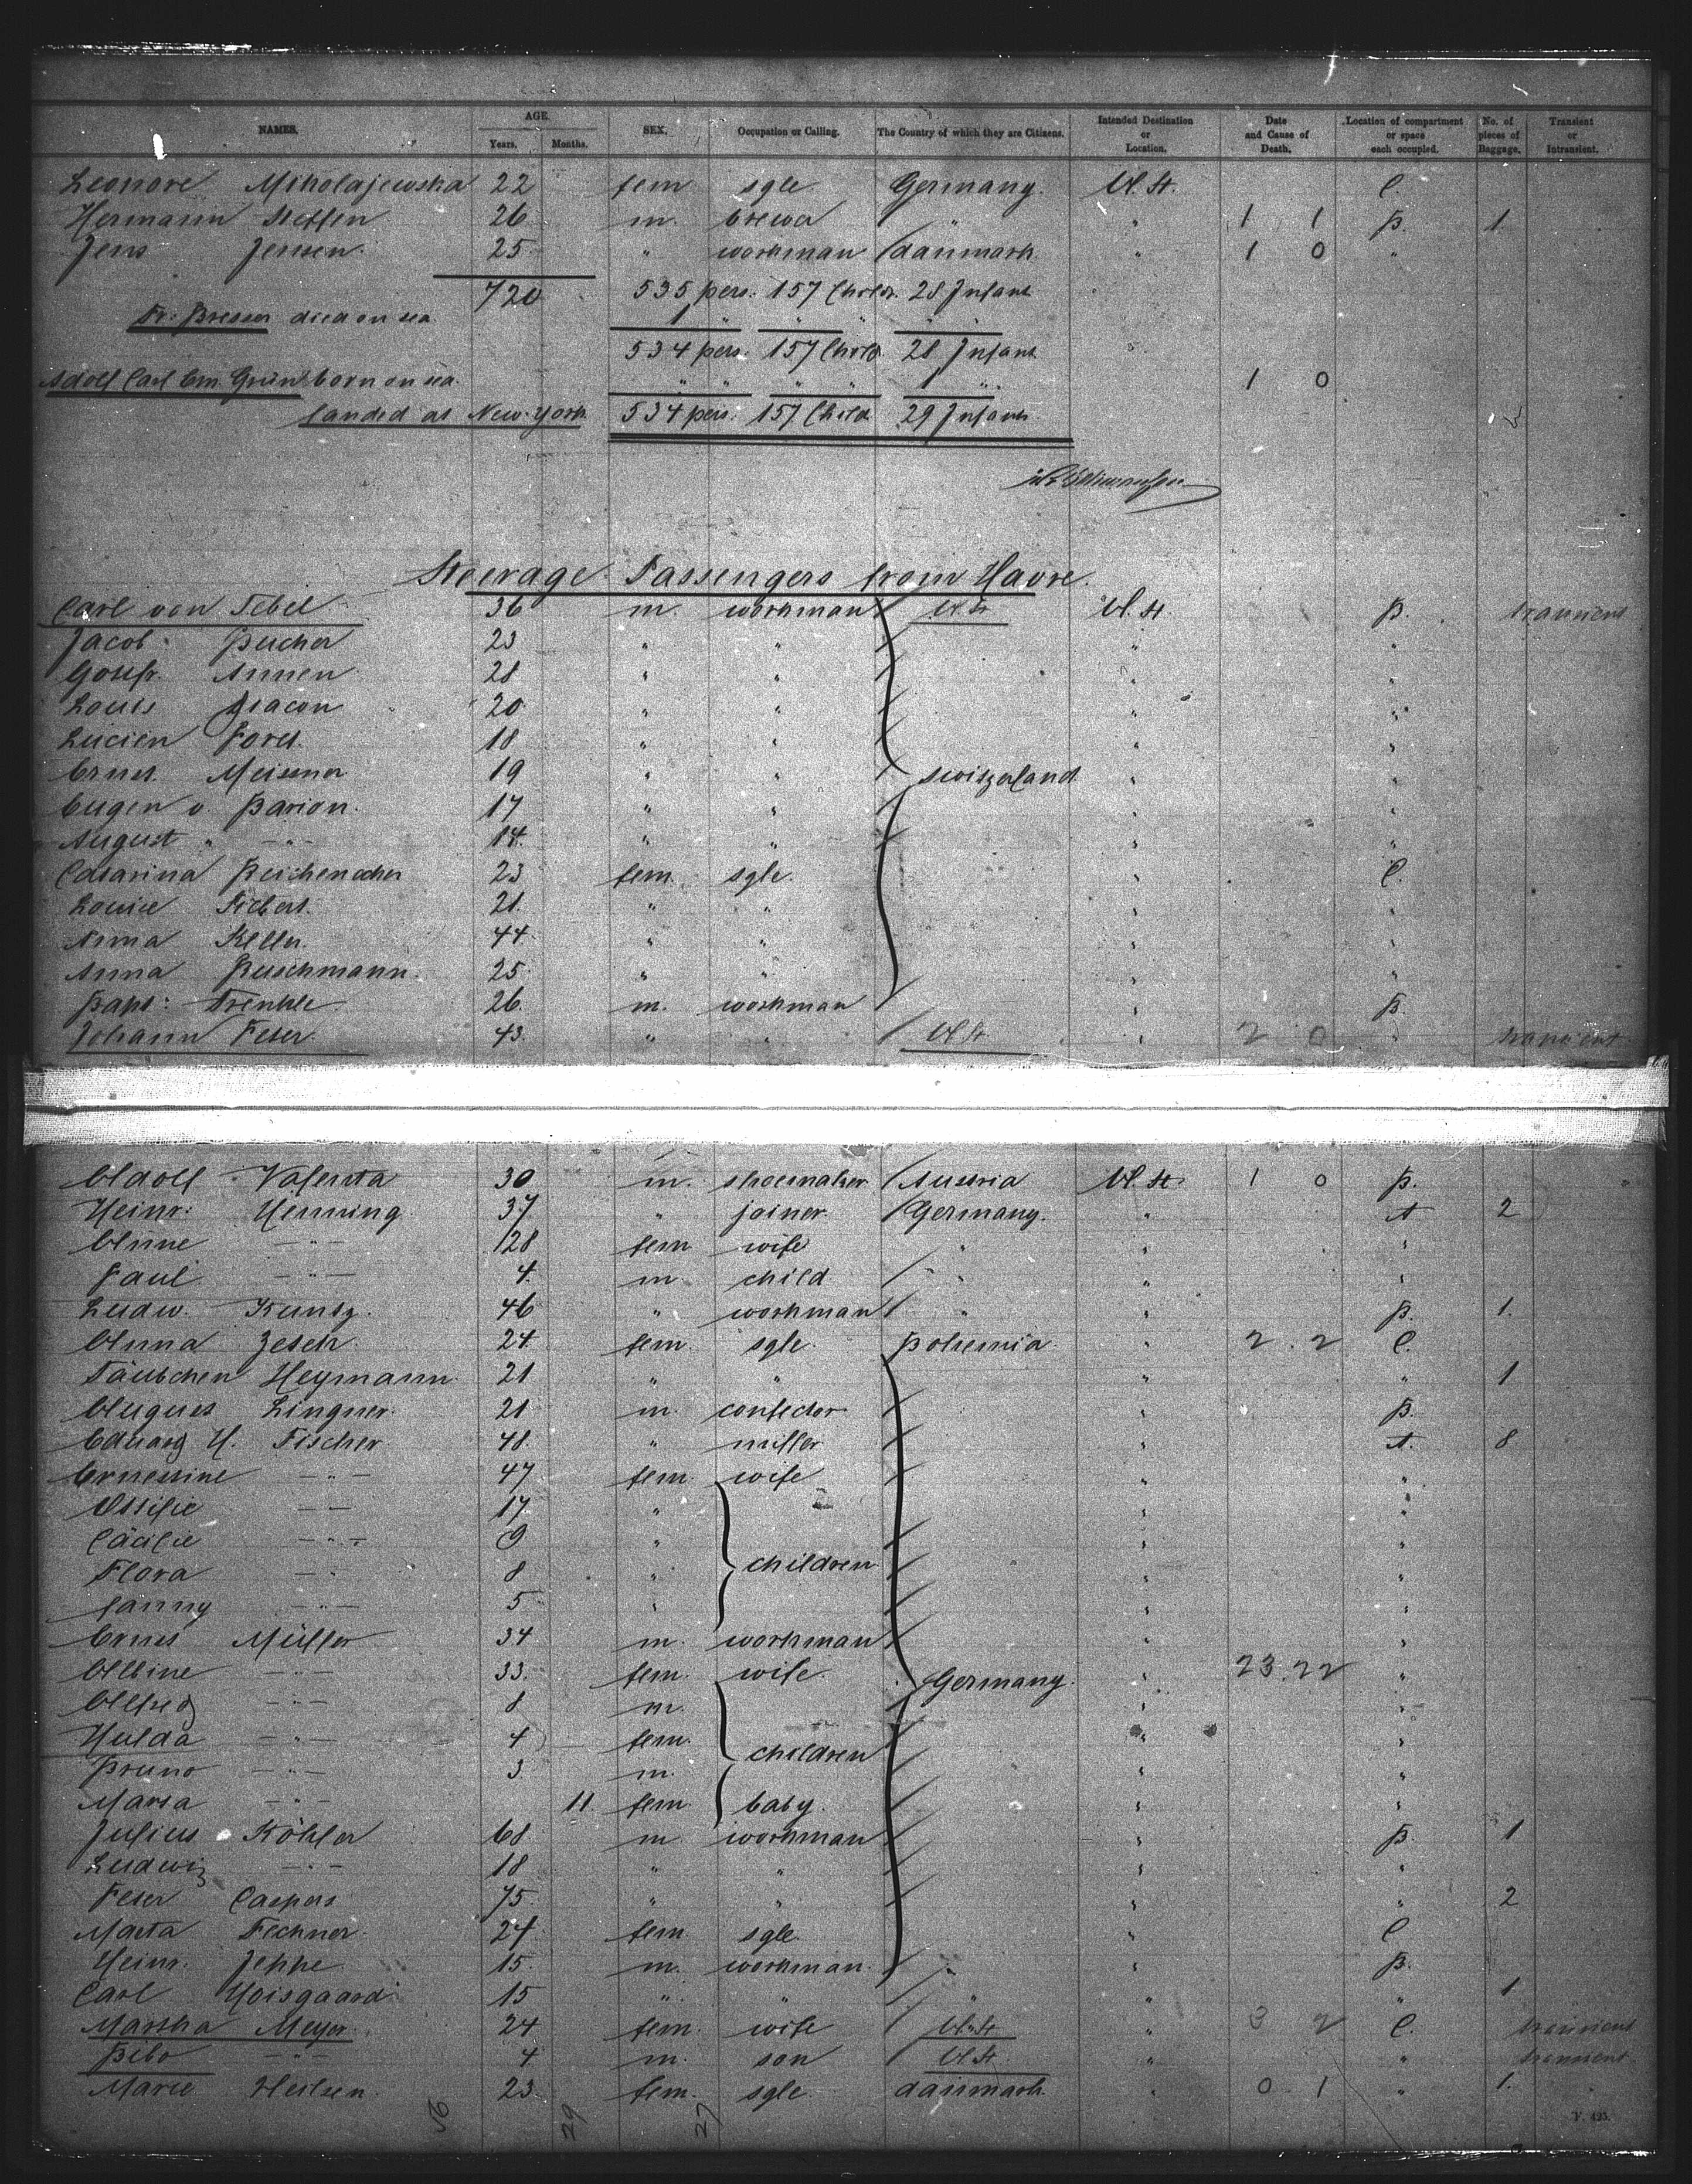 NAMES. AGE. Years. Months. SEX. Occupation or Calling. The Country of which they are Citizens. Intended Destination or Location. Date and Cause of Death. Location of compartment or space each occupied. No. of pieces of Baggage. Transient or Intransient.
Leonore Mikolajewska 22 fem sgle Germany. U. St. C.
Hermann Steffen 26 m. brewer " " 1 1 B. 1.
Jens Jensen 25 " workman danmark. " 1 0 "
720 535 pers. 157 Childr. 28 Infant
Fr. Bresser died on sea. 1 " " "
534 pers. 157 Child 28 Infant
Adolf Carl Em. Grün born on sea. " " " " 1 " 1 0
landed at New-York 534 pers. 157 Child 29 Infants
Steerage Passengers from Havre.
Carl von Tebel 36 m. workman U. St. U. St. B. transient
Jacob Bucher 23 " " " "
Joseph Annen 28 " " " "
Louis Jeacon 20 " " " "
Lucien Foret 18 " " " "
Ernest Meissner 19 " " Switzerland " "
Eugen v. Barion. 17 " " " "
August " -"- 14. " " " "
Catarina Reichenecker 23 fem. sgle. " C.
Louise Siebert. 21. " " " "
Anna Keller. 44 " " " "
Anna Buschmann. 25 " " " "
Bapt: Trenkle 26. m. workman " B.
Johann Peter 43. " " U. St " 2 0 " transient
Adolf Valenta 30 m. shoemaker Austria U. St. 1 0 B.
Heinr: Henning 37 " joiner Germany. " A 2
Anne -"- 28 fem wife " " "
Paul -"- 4. m. child " " "
Ludw. Kuntz. 46 " workman " " B. 1.
Anna Zesch 24 fem. sgle. Bohemia " 2. 2 C.
Täubchen Heymann 21 " " " " 1
August Lingner. 21 m. confector " B.
Eduard H. Fischer 48. " miller " A. 8
Ernestine -"- 47 fem. wife " "
Ottilie -"- 17 " " "
Cäcilie -"- 9 " " "
Flora -"- 8 " children " "
Fanny -"- 5 " " "
Ernst Müller 34 m. workman " "
Albine -"- 33. fem. wife. Germany. " 23. 22 "
Alfred -"- 8 m. " "
Hulda -"- 4 fem. " "
Bruno -"- 3. m. children " "
Marta -"- 11. fem baby. " "
Julius Köhler 68 m workman " B. 1
Ludwig -"- 18 " " " "
Peter Caspers 75. " " " " 2
Marta Fechner. 24 fem. sgle. " C
Heinr. Jeppe. 15. m. workman. " " B.
Carl Hoisgaard 15 " " " " " 1
Martha Meyer. 24 fem. wife U. St " 3 2 C. transient
Bebo -"- 4 m. son U. St. " " transient
Marie Heilsen 23 fem. sgle danmark. " 0. 1 " 1.
56 29 27
V. 425.